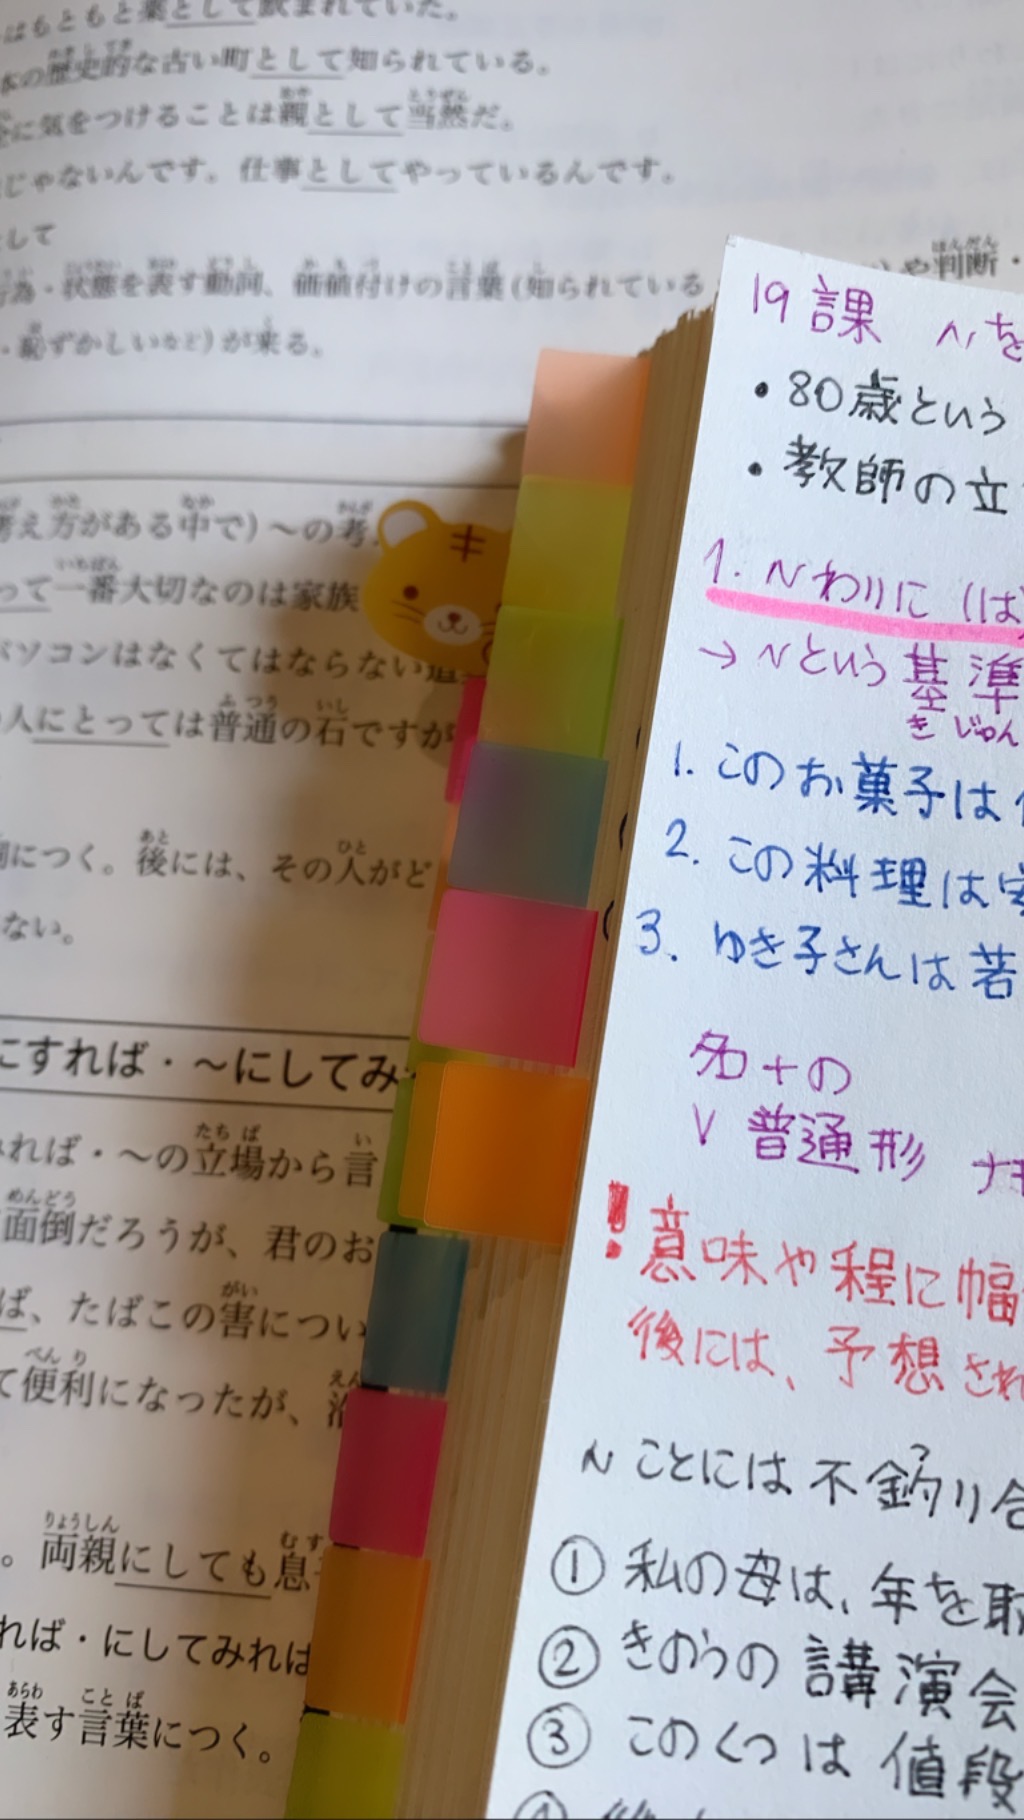 はもともと薬として飲まれていた。
本の歴史的な古い町として知られている。
に気をつけることは親として当然だ。
じゃないんです。仕事としてやっているんです。
して
為・状態を表す動詞、価値付けの言葉(知られている
や判断・
・恥ずかしいなど)が来る。
考え方がある中で)～の考
って一番大切なのは家族
パソコンはなくてはならない道
人にとっては普通の石ですが
につく。後には、その人がど
ない。
にすれば・～にしてみ
れば・～の立場から言
面倒だろうが、君のお
ば、たばこの害につい
て便利になったが、
。両親にしても息
れば・にしてみれば
表す言葉につく。
19課 ～を
・80歳という
・教師の立
1. ～わりに (は)
→ ～という基準
きじゅん
1. このお菓子は
2. この料理は
3. ゆき子さんは若
名+の
V 普通形 ナ
! 意味や程に幅
後には、予想され
～ことには不釣り合
① 私の母は、年を取
② きのうの講演会
③ このくつは値段